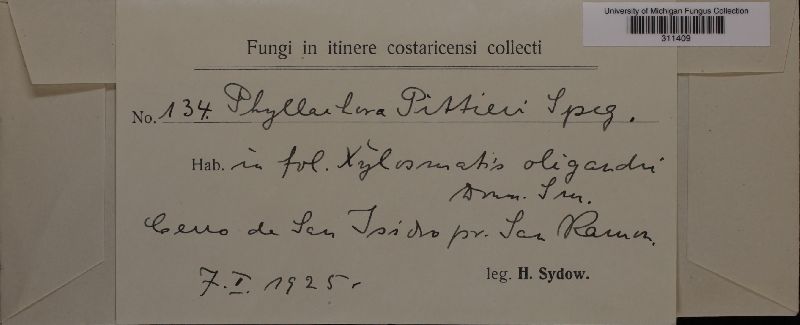 University of Michigan Fungus Collection
311409
Fungi in itinere costaricensi collecti
No. 134. Phyllachora Pittieri Speg.
Hab. in fol. Xylosmatis oligandri
Donn. Sm.
Cerro de San Isidro pr. San Ramon.
7. I. 1925.
leg. H. Sydow.